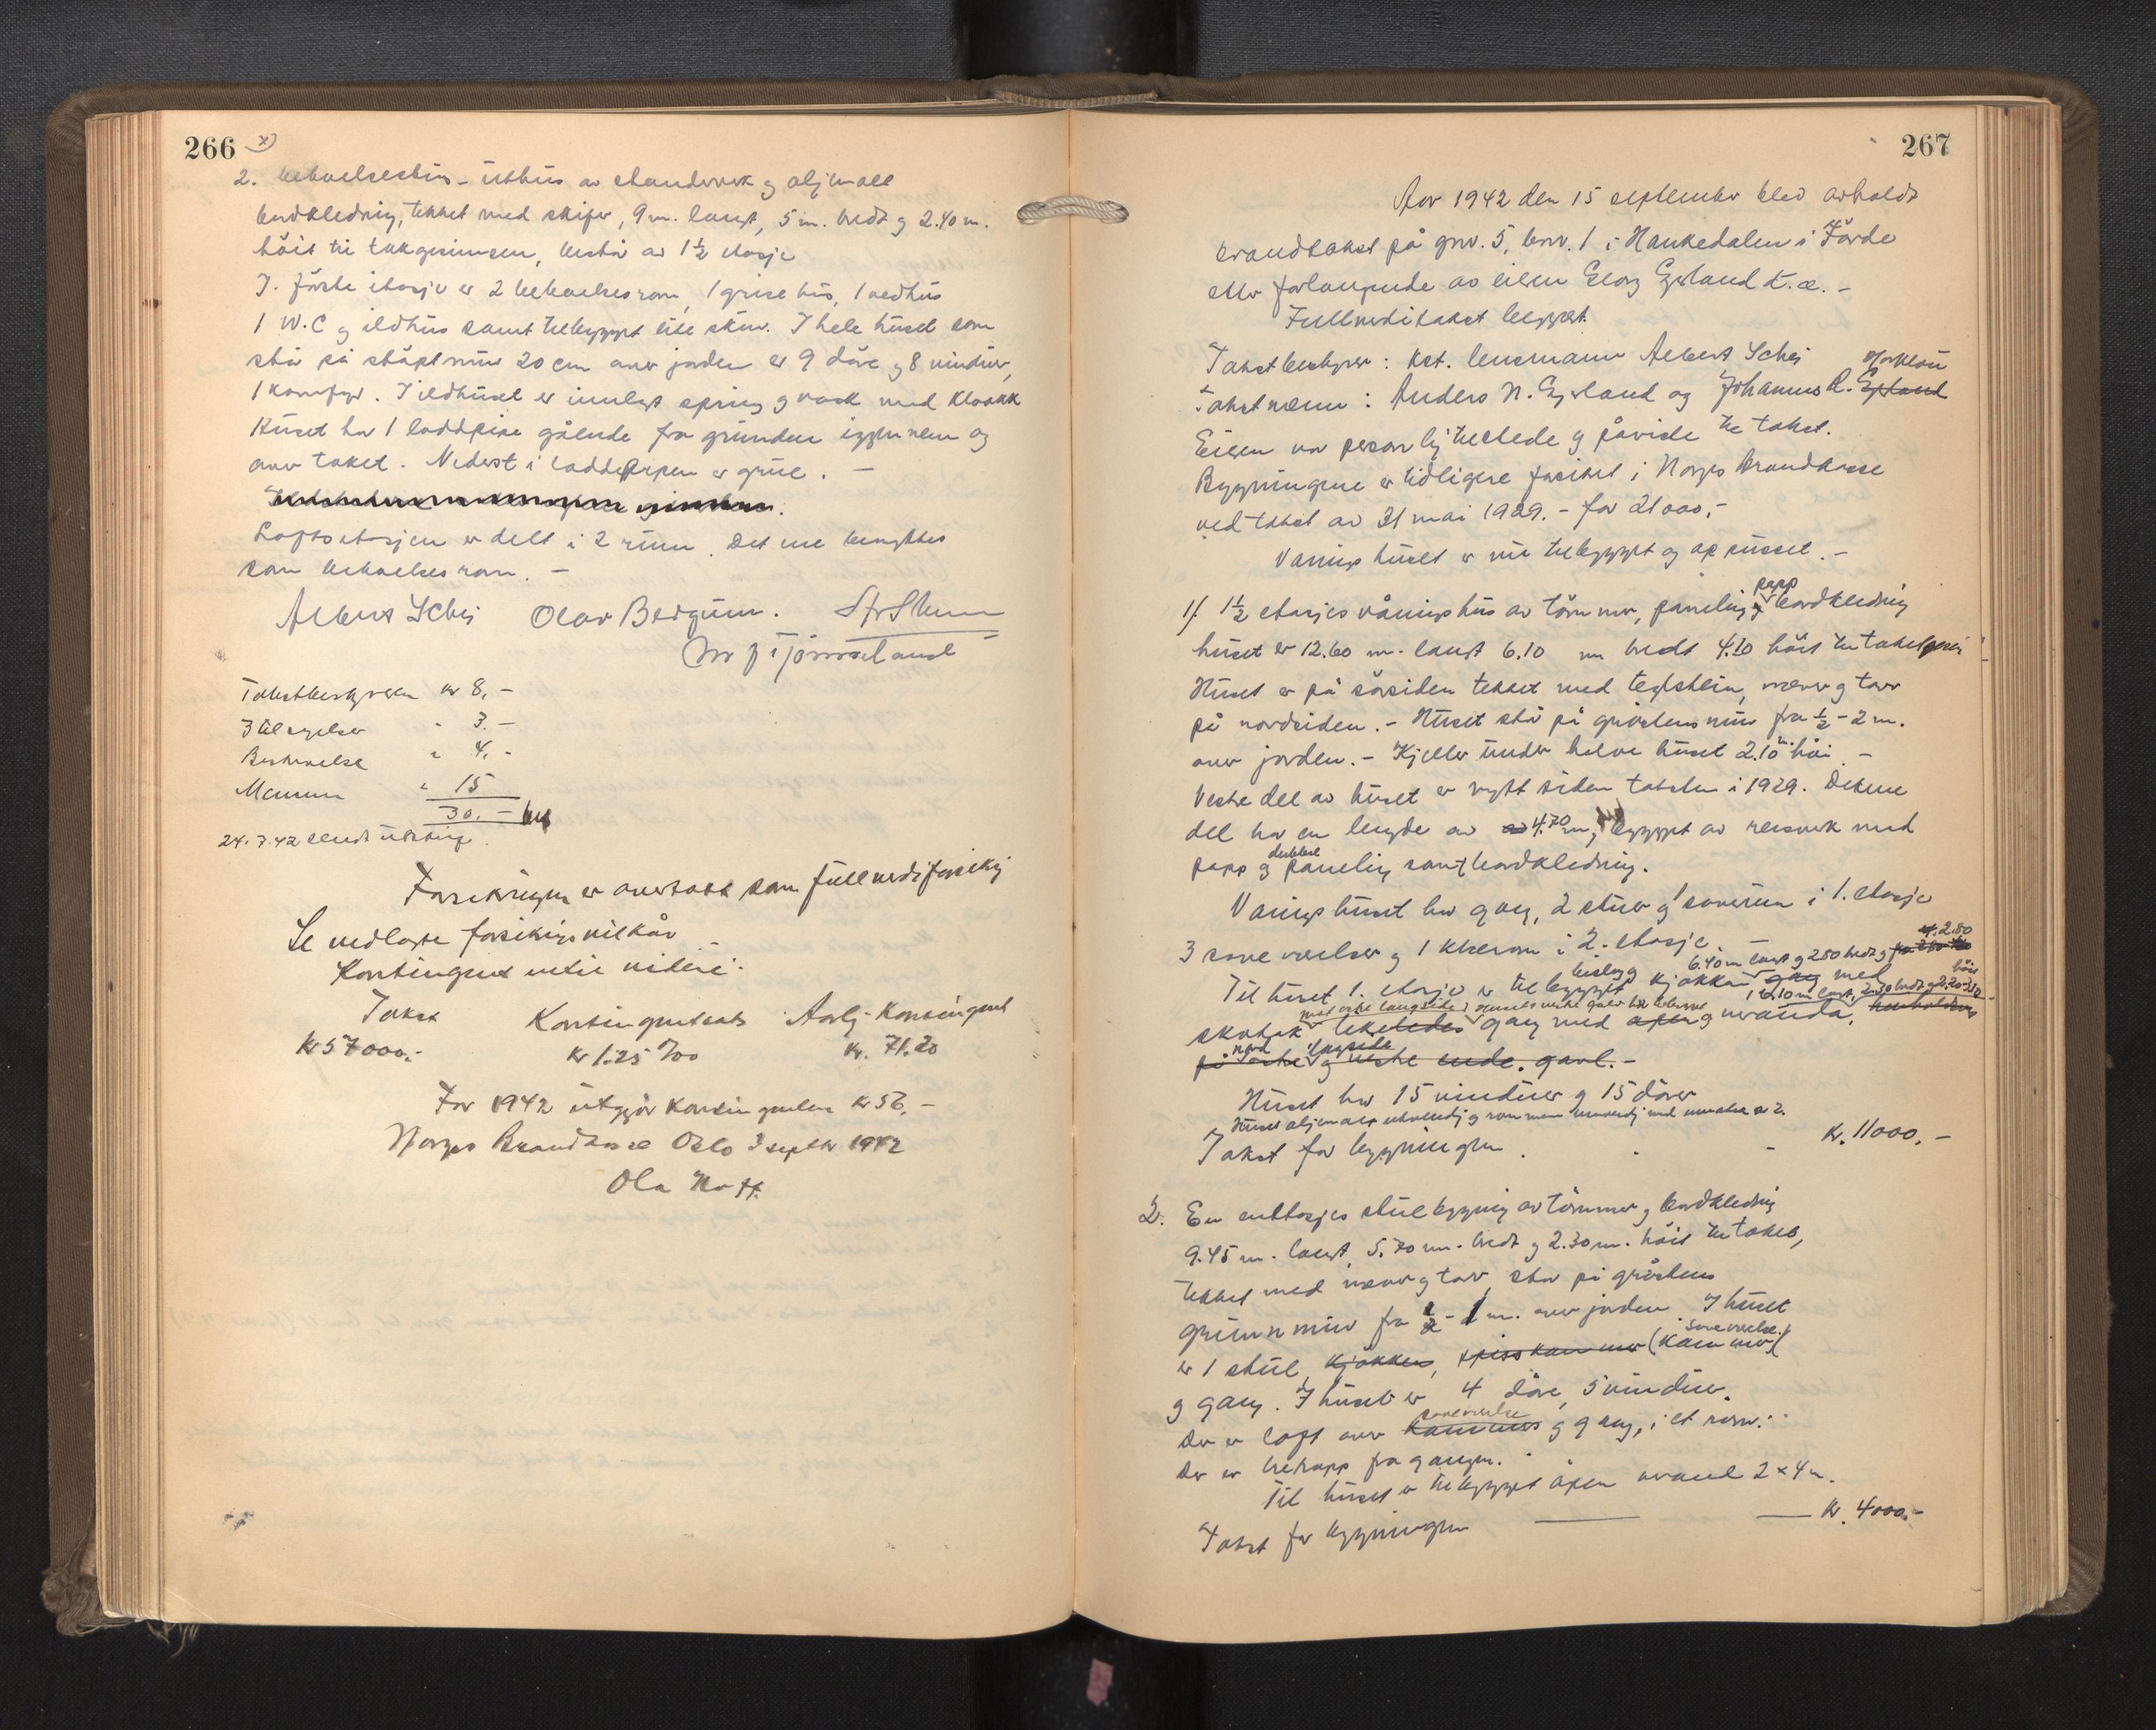 266 x)
2. bekvelseshus - uthus av standverk og oljemalt
bordkledning, tekket med skifer, 9 m. langt, 5 m. bredt og 2.40 m.
höit til takgesimsen, består av 1½ etasje
I. förste etasje er 2 bekvelsesrom, 1 grisehus, 1 vedhus
1 W.C og ildhus samt tilbygget lite skur. I hele huset som
står på støpt mur 20 cm over jorden er 9 döre og 8 vinduer,
1 komfyr. I ildhuset er innlagt spring og vask med kloakk
Huset har 1 loddpipe gående fra grunden igjennem og
over taket. Nederst i loddpipen er grue. —
Loftsetasjen er delt i 2 rum. Det ene benyttes
som bekvelsesrom. —
Albert Schei Olav Bergum.
Takstbestyreren kr 8. -
3 tilsyelser " 3. -
Beskrivelse " 4. -
Mennene " 15
30. -
24.7.42 sendt utskrift.
Forsikringen er overtatt som fullverdiforsikring
Se vedlagte forsikringsvilkår
Kontingent inntil videre:
Takst Kontingentsats Aarlig Kontingent
Kr 57000.- Kr 1.25 ‰ Kr. 71.20
For 1942 utgjør kontingenten kr 56. -
Norges Brandkasse Oslo 3 septbr 1942
Ola Hoff.
267
Aar 1942 den 15 september blev avholdt
brandtakst på gnr. 5, bnr. 1 i Haukedalen i Förde
etter forlangende av eieren Georg Egeland d.e. -
Fullverditakst begjært.
Takstbestyrer: kst. lensmann Albert Schei
Takstmenn: Anders N. Egeland og Johannes R. Egeland
Eieren var personlig tilstede og påviste til takst.
Bygningene er tidligere forsikret i Norges Brandkasse
ved takst av 31 mai 1929. - for 21000,-
Våningshuset er nu tilbygget og oppusset. -
1/. 1½ etasjes våningshus av tömmer, paneling, papp og bordkledning
huset er 12.60 m. langt 6.10 m bredt 4.10 höit til takgesims
Huset er på sörsiden tekket med teglstein, never og torv
på nordsiden. - Huset står på gråstensmur fra ½ - 2 m.
over jorden. - Kjeller under halve huset 2.10 m höi. -
Vestre del av huset er nytt siden taksten i 1929. Denne
del har en lengde av 4.70 m, bygget av reisverk med
papp og dobbel paneling samt bordkledning.
Våningshuset har gang, 2 stuer og 1 soverum i 1. etasje
3 soveværelser og 1 kleserom i 2. etasje.
Til huset 1. etasje er tilbygget bislag og kjøkken gang med 6.40 m langt og 2.50 bredt og 2.80
skråtak likeledes gang med åpen veranda,
på nord østre og vestre ende. gavl. -
Huset har 15 vinduer og 15 dörer
Takst for bygningen. - Kr. 11000. -
2. En enetasjes stuebygning av tömmer og bordkledning
9.45 m. langt, 5.70 m. bredt og 2.30 m. höit til takes,
tekket med never og torv, står på gråstens
grunnmur fra ½ - 1 m. over jorden. I huset
er 1 stue, kjøkken, spisskammer (kammer) soveværelse.
og gang. I huset er 4 döre, 5 vinduer.
Der er loft over kammers soveværelse og gang, i et rum.
Der er tretrapp fra gangen.
Til huset er tilbygget åpen svale 2 x 4 m.
Takst for bygningen — — Kr. 4000.-